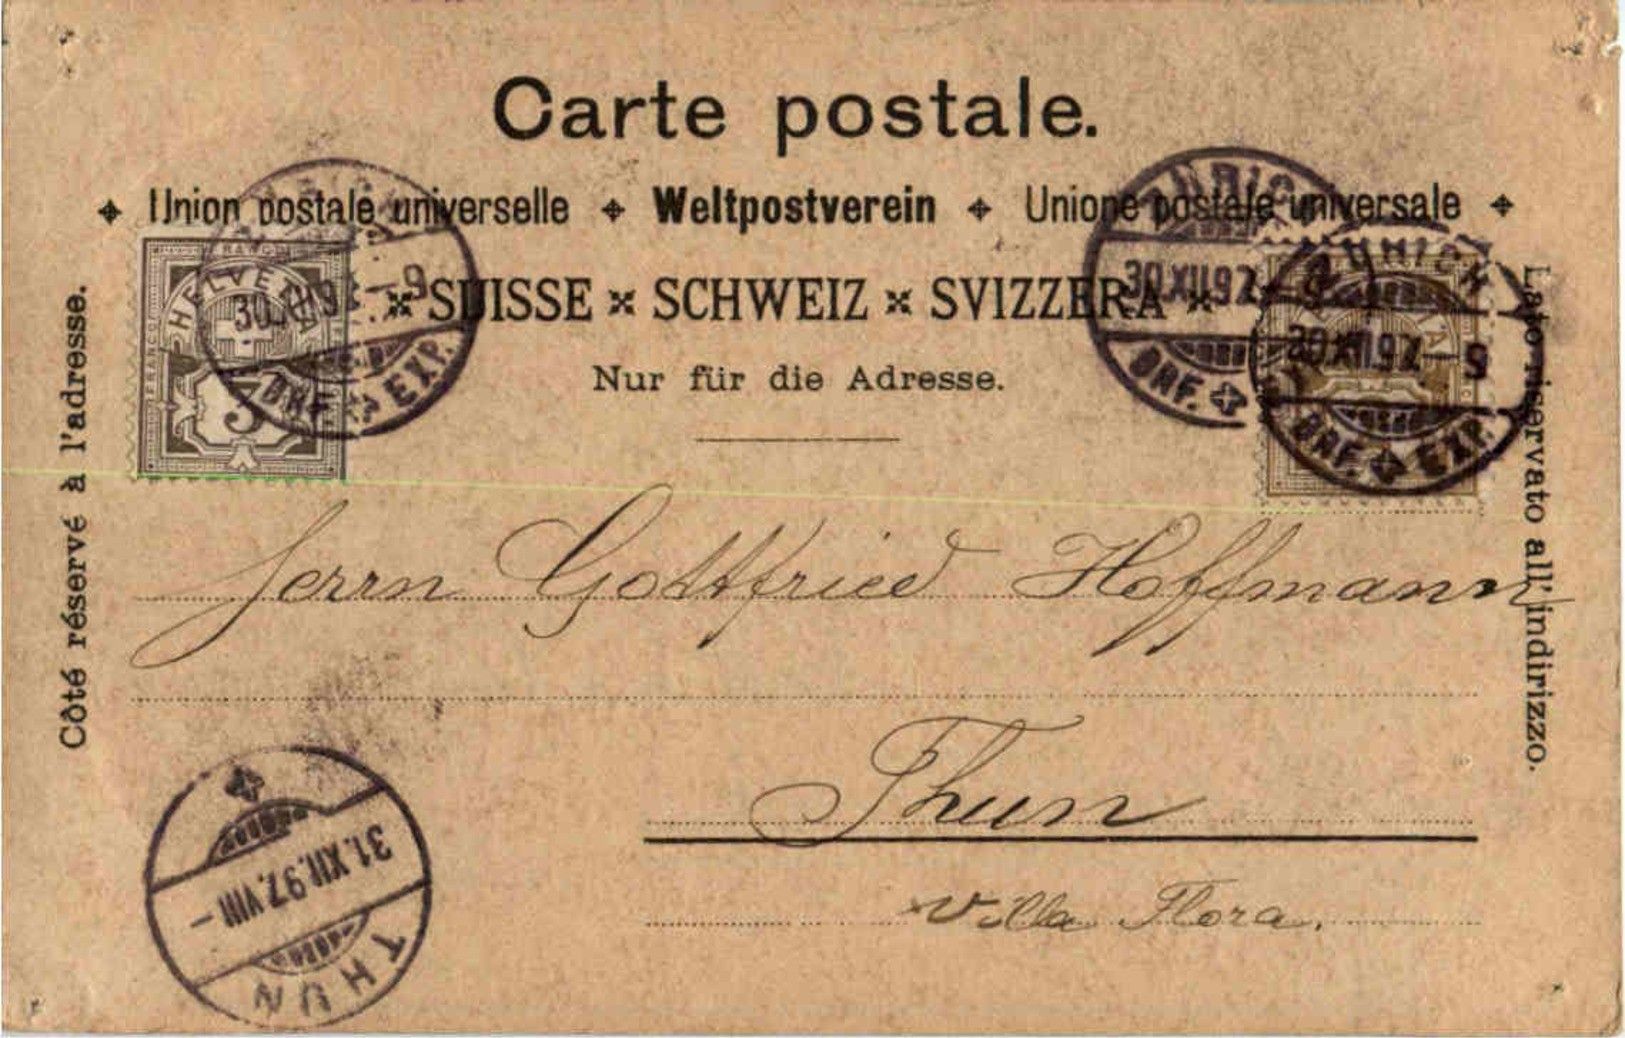 Carte postale.
Union postale universelle Weltpostverein Unione postale universale
SUISSE SCHWEIZ SVIZZERA
Nur für die Adresse.
Côté réservé à l'adresse.
Lato riservato all'indirizzo.
FRANCO
HELVETIA
30.XII.97.–9
BRF. EXP.
ZÜRICH
30.XII.97.–9
BRF.
ZÜRICH
30.XII.97.–9
BRF. EXP.
Herrn Gottfried Hoffmann
Thun
Villa Flora.
31.XII.97.VIII–
THUN